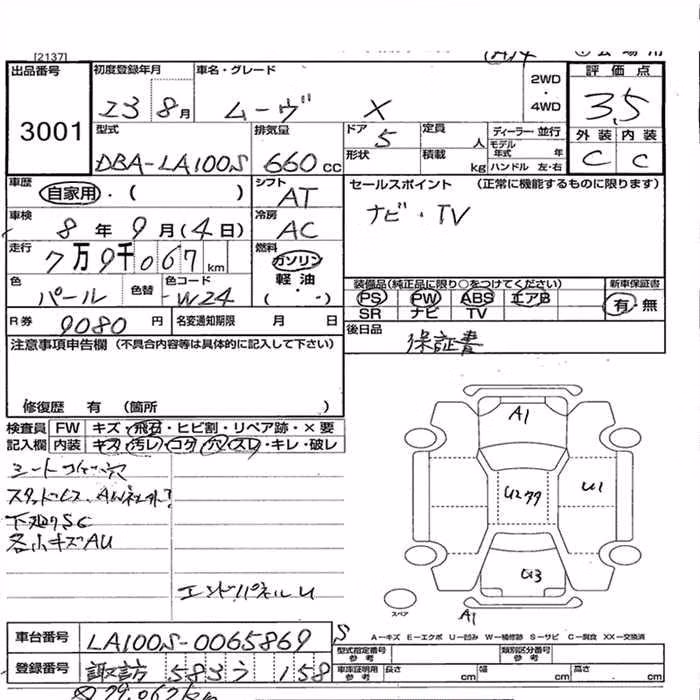 [2137]
出品番号 初度登録年月 車名・グレード 2WD・4WD 評価点
3001 23 8月 ムーヴ X 3.5
型式 排気量 ドア 5 定員 人 ディーラー・並行 外装 内装
DBA-LA100S 660cc 形状 積載 kg モデル年式 年 ハンドル 左・右 C C
車歴 自家用・( ) シフト AT セールスポイント (正常に機能するものに限ります)
車検 8年9月(4日) 冷房 AC ナビ・TV
走行 7万9千067km 燃料 ガソリン
軽油
( ・ )
色 パール 色替 色コード W24
装備品(純正品に限り○をつけてください) 新車保証書
PS PW ABS エアB 有・無
SR ナビ TV
R券 9080円 名変通知期限 月 日 後日品
保証書
注意事項申告欄(不具合内容等は具体的に記入して下さい)
修復歴 有 (箇所 )
検査員 FW キズ・飛石・ヒビ割・リペア跡・×要
記入欄 内装 キズ・汚レ・コゲ・穴・スレ・キレ・破レ
下廻りSC
各小キズAU
エンドパネルU
A1
U1
U3
A1
スペア
A－キズ E－エクボ U－凹み W－補修跡 S－サビ C－腐食 XX－交換済
車台番号 LA100S-0065869 S 型式指定番号 参考 類別区分番号 参考
登録番号 諏訪 583 う 158 車庫証明用 参考 長さ cm 幅 cm 高さ cm
79,067km